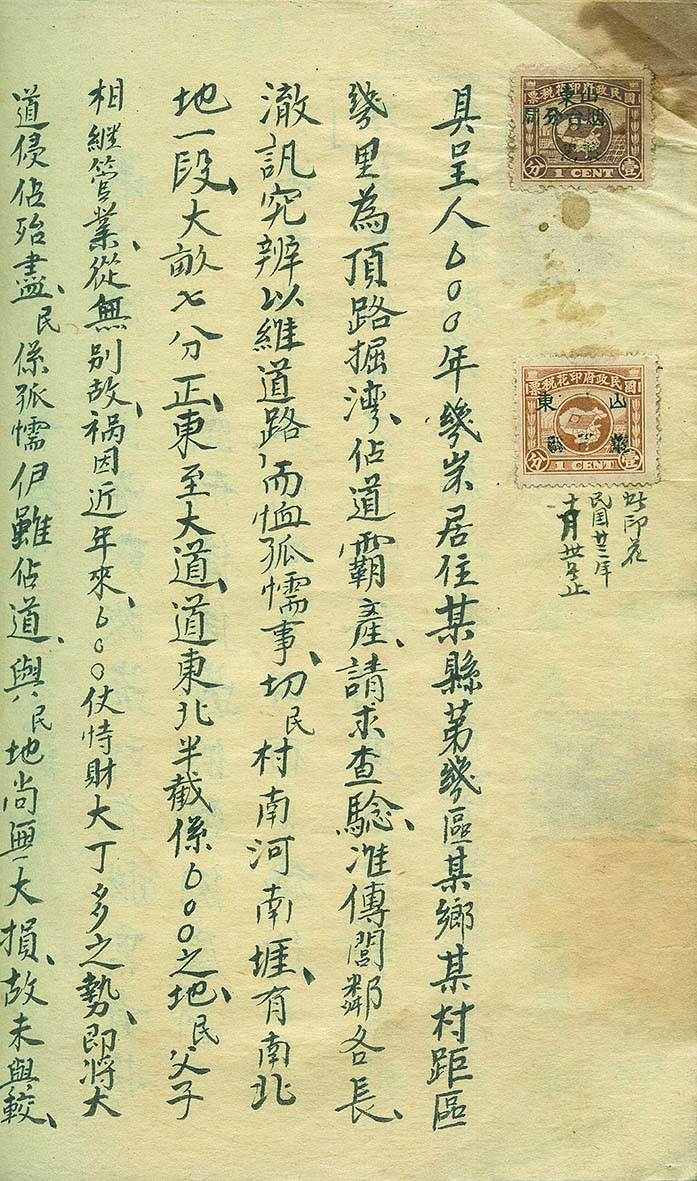 國民政府印花稅票
山東
烟台分局
壹分
1 CENT
國民政府印花稅票
山東
壹分
1 CENT
此印花
民国廿三年
月卅号止
具呈人〇〇〇年幾岁居住某縣苐幾區某鄉某村距區
幾里為頂路掘湾、佔道霸產、請求查驗、准傳閭鄰各長、
澈訊究辦以維道路、而恤孤懦事、切民村南河南堐、有南北
地一段、大畝七分正、東至大道、道東北半截係〇〇〇之地、民父子
相継管業、從無别故、禍因近年來、〇〇〇仗恃財大丁多之勢、即將大
道侵佔殆盡、民係孤懦伊雖佔道、與民地尚無大損、故未與較、